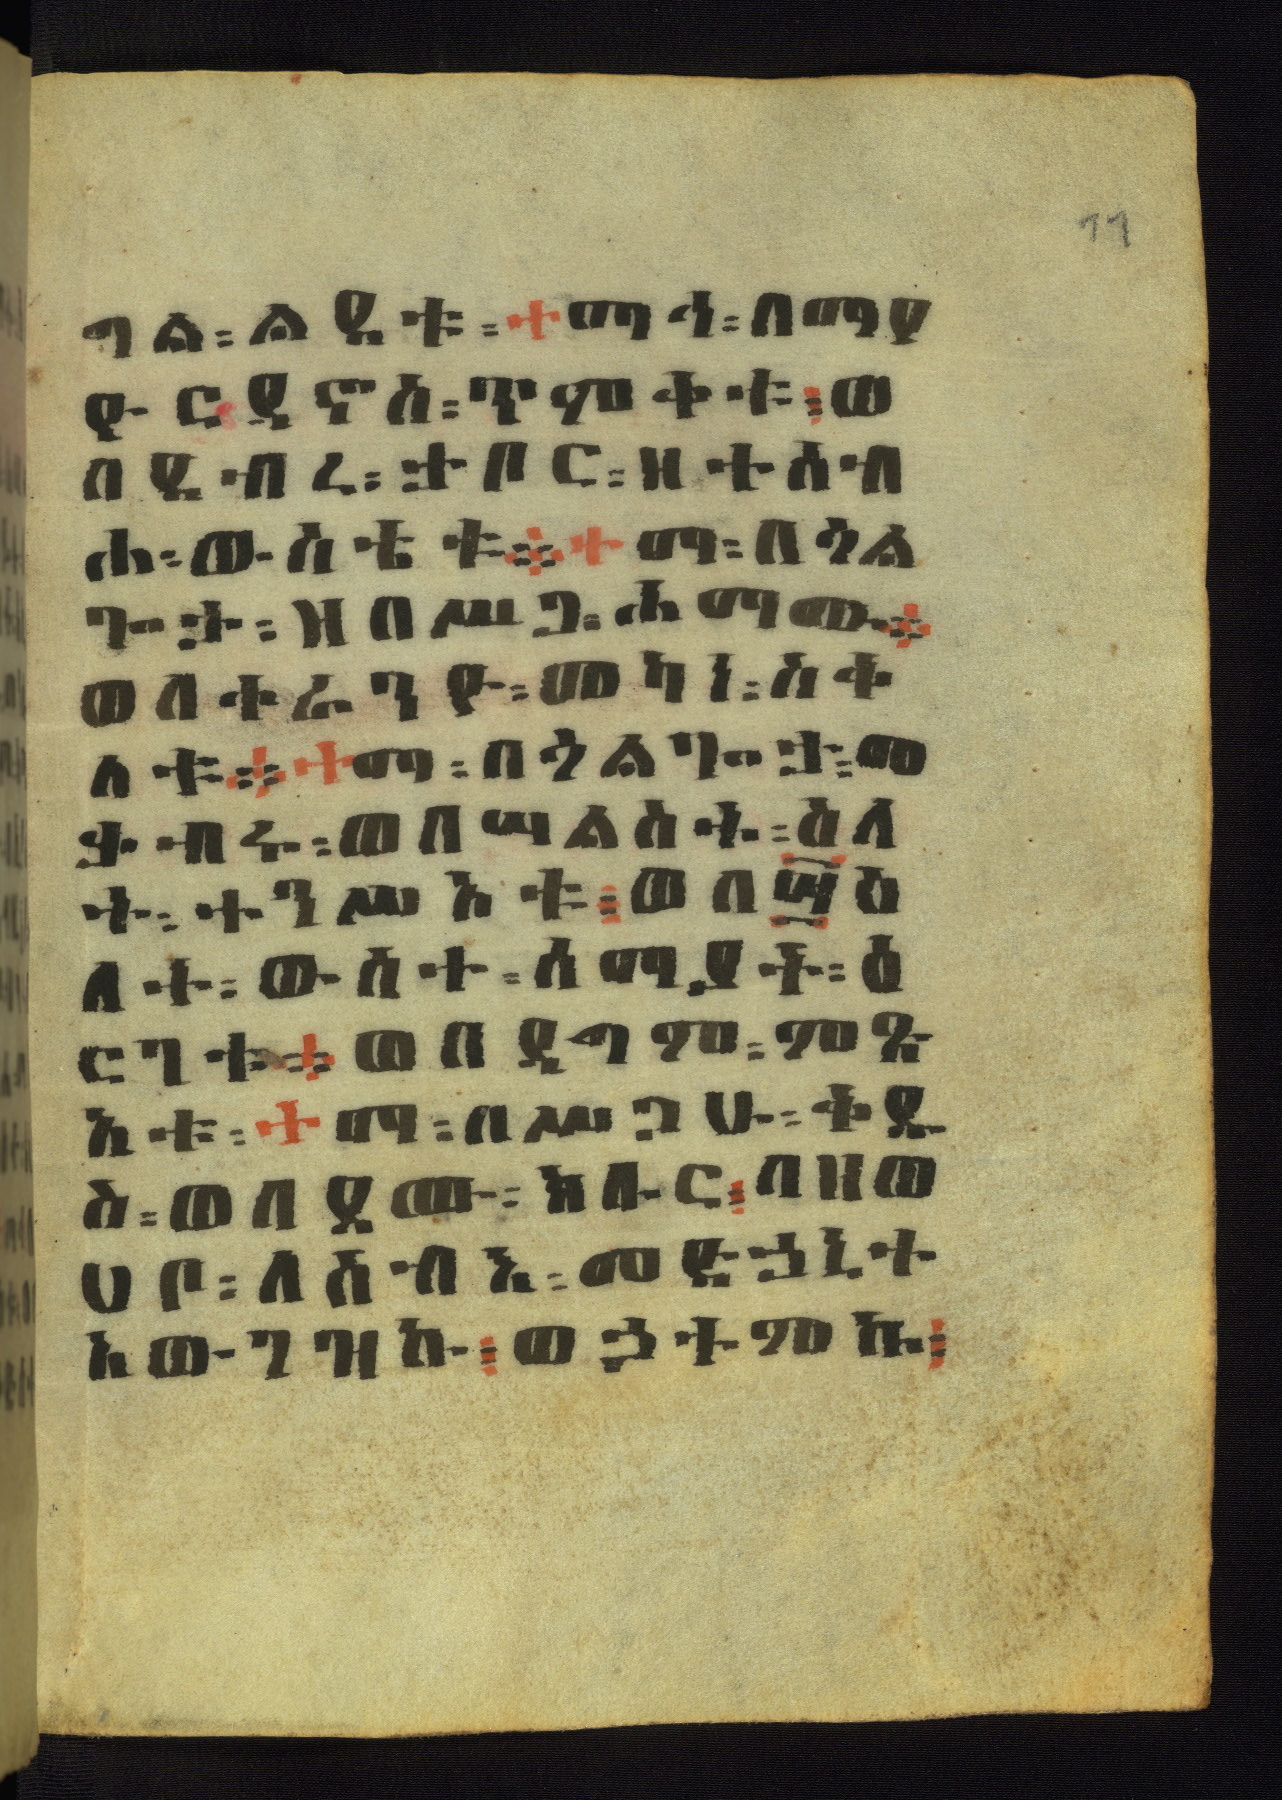 ግል፡ ልደቱ፡ ተማኅ፡ በማየ
ዮርዳኖስ፡ ጥምቀቱ፤ ወ
በደብረ፡ ታቦር፡ ዘተሰብ
ሐ፡ ውስቴቱ፨ ተማ፡ በጎል
ጎታ፡ ዘበሥጋ፡ ሐማሙ፨
ወበቀራንዮ፡ መካነ፡ ስቅ
ለቱ፨ ተማ፡ በጎልጎታ፡ መ
ቃብሩ፡ ወበሣልስት፡ ዕለ
ት፡ ተንሥኦቱ፤ ወበ፵ዕ
ለት፡ ውስተ፡ ሰማያት፡ ዕ
ርገቱ፨ ወበዳግም፡ ምጽ
አቱ፡ ተማ፡ በሥጋሁ፡ ቅዱ
ስ፡ ወበደሙ፡ ክቡር፤ በዘወ
ሀቦ፡ ለሰብእ፡ መድኃኒተ
አውግዝኩ፤ ወኃተምኩ፤
11